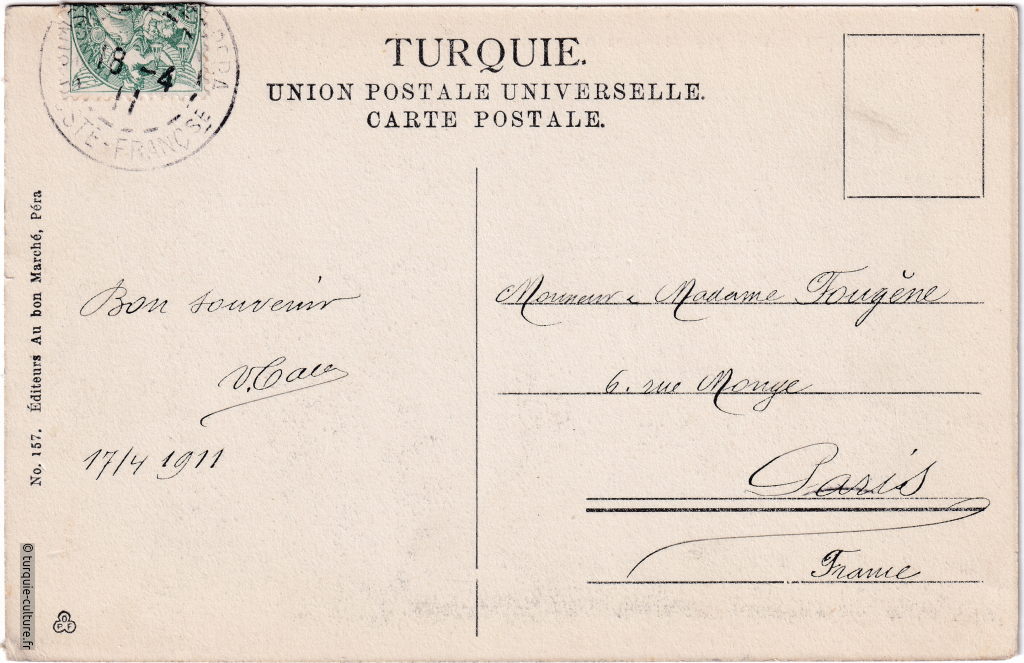 PERA
18 -4
11
STE-FRANÇSE
TURQUIE.
UNION POSTALE UNIVERSELLE.
CARTE POSTALE.
No. 157. Éditeurs Au bon Marché, Péra
Bon souvenir
17/4 1911
Monsieur & Madame Fougène
6. rue Monge
Paris
France
© turquie-culture.fr